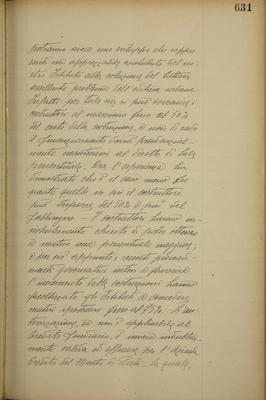 631
potranno avere uno sviluppo che rappre-
senti un apprezzabile contributo del no-
stro Istituto alla soluzione del tuttora
assillante problema dell'edilizia urbana.
Infatti per tale via si può sovvenire i
costruttori al massimo fino al 50%
del costo della costruzione, e non di rado
il finanziamento dovrà prudenzial-
mente mantenersi al disotto di tale
percentuale. Ora l'esperienza ha
dimostrato che è il caso meno fre-
quente quello in cui il costruttore
può disporre del 50% e più del
fabbisogno - I costruttori hanno in-
dubbiamente chiesto di poter ottenere
a mutuo una percentuale maggiore;
e per ciò appunto, recenti provvedi-
menti governativi intesi a favorire
l'incremento delle costruzioni hanno
autorizzato gli Istituti a concedere
mutui ipotecari fino al 75%. L'au-
torizzazione, se non è applicabile al
Credito fondiario, è invece indubbia-
mente valida ed efficace per l'Azienda
Credito del Monte di Pietà, la quale,